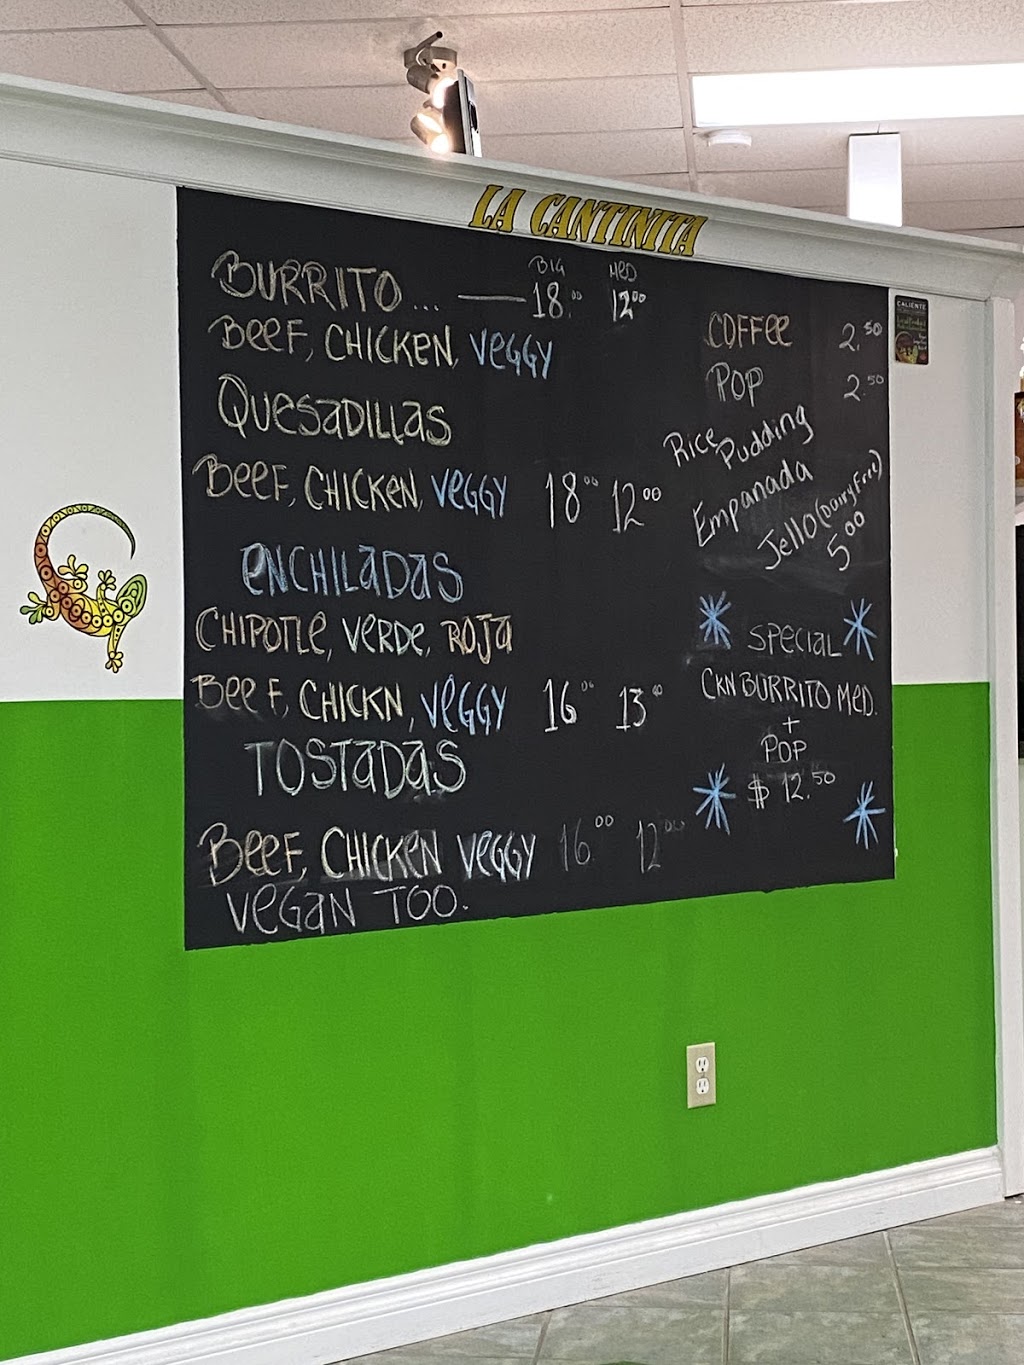 LA CANTINITA
BIG MED
BURRITO... — 18.00 12.00
BEEF, CHICKEN, VEGGY
QUESADILLAS
BEEF, CHICKEN, VEGGY 18.00 12.00
ENCHILADAS
CHIPOTLE, VERDE, ROJA
BEEF, CHICKN, VEGGY 16.00 13.00
TOSTADAS
BEEF, CHICKEN VEGGY 16.00 12.00
VEGAN TOO.
COFFEE 2.50
POP 2.50
Rice Pudding
Empanada
Jello (Dairy Free)
5.00
SPECIAL
CKN BURRITO MED.
+
POP
$ 12.50
CALIENTE